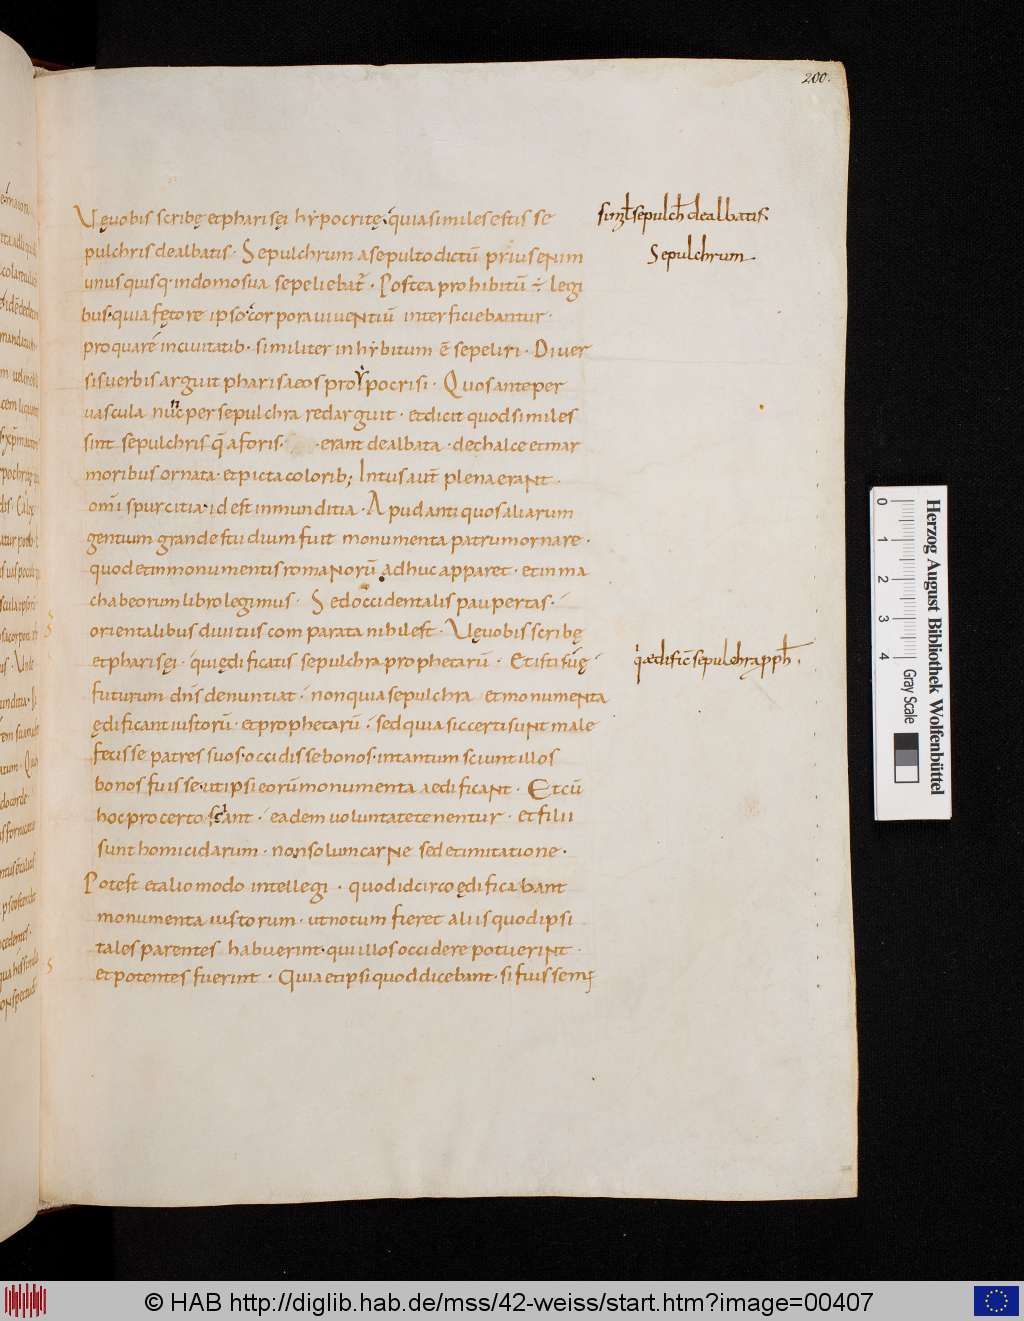 200.
Vęuobis scribę et pharisęi hẏpocritę· quia similes estis se
pulchris dealbatis· Sepulchrum a sepulto dictū prius enim
unusquisq· in domo sua sepeliebat᷑· Postea prohibitū ÷ legi
bus· quia fętore ipso corpora uiuentiū interficiebantur·
pro qua rē in ciuitatib· similiter in hẏbitum ē sepeliri· Diuer
sis uerbis arguit pharisaeos pro ẏpocrisi· Quos ante per
uascula nunc per sepulchra redarguit· et dicit quod similes
sint sepulchris q̄ a foris· · erant dealbata· de chalce et mar
moribus ornata· et picta colorib; Intus aut̄ plena erant·
omī spurcitia· id est inmunditia· Apud antiquos aliarum
gentium grande studium fuit monumenta patrum ornare·
quod et in monumentis romanorū adhuc apparet· et in ma
chabeorum libro legimus· Sed occidentalis paupertas·
orientalibus diuitiis comparata nihil est· Vęuobis scribę
et pharisęi· qui ędificatis sepulchra prophetarū· Et isti sūę
futurum dn̄s denuntiat· non quia sepulchra et monumenta
ędificant iustorū· et prophetarū· sed quia sic certi sunt male
fecisse patres suos· occidisse bonos· in tantum sciunt illos
bonos fuisse· ut ipsi eorū monumenta aedificant· Et cū
hoc pro certo sciant· eadem uoluntate tenentur· et filii
sunt homicidarum· non solum carne sed et imitatione·
Potest et alio modo intellegi· quod idcirco ędificabant
monumenta iustorum· ut notum fieret aliis quod ipsi
tales parentes habuerint· qui illos occidere potuerint·
et potentes fuerint· Quia et ipsi quod dicebant· si fuissem;
siml̄ sepulch̄ dealbatis
Sepulchrum
q̇ aedific̄ sepulchra pph̄·
Herzog August Bibliothek Wolfenbüttel
0 1 2 3 4 Gray Scale
© HAB http://diglib.hab.de/mss/42-weiss/start.htm?image=00407